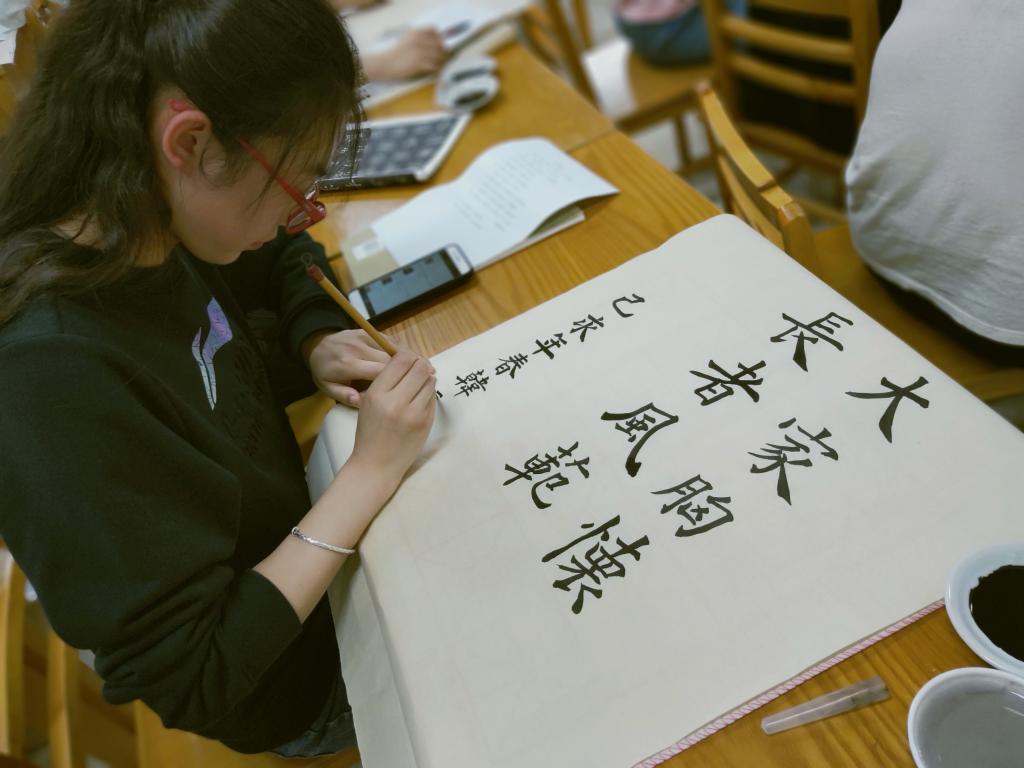 大家胸懷
長者風範
己亥年春韓